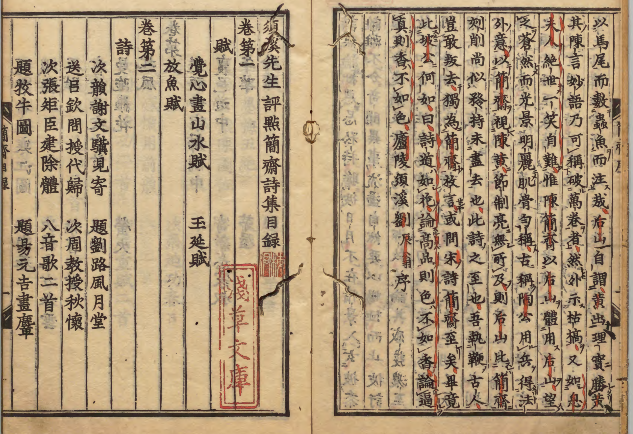 以馬尾而數蟲魚而注裁后山自謂黃出理實勝黃
其陳言妙語乃可稱破萬卷者然外示枯槁又如息
夫人絶世一笑自難惟陳簡齋以后山體用后山望
之蒼然而光景明麗肌骨勻稱古稱陶公用兵得法
外意以簡齋視陳黃節制亮無不及則后山比簡齋
刻削尚似矜持未盡去也此詩之至也吾執鞭古人
豈敢叛去獨為簡齋放言或問宋詩簡齋至矣畢竟
比坡公何如曰詩道如花論高品則色不如香論逼
真則香不如色廬陵須溪劉辰翁序
須溪先生評點簡齋詩集目錄
卷第一
賦
覺心畫山水賦 玉延賦
放魚賦
卷第二
詩
次韻謝文驥見寄 題劉路風月堂
送吕欽問授代歸 次周教授秋懷
次張矩臣建除體 八音歌二首
題牧牛圖 題易元吉畫麞
淺草文庫